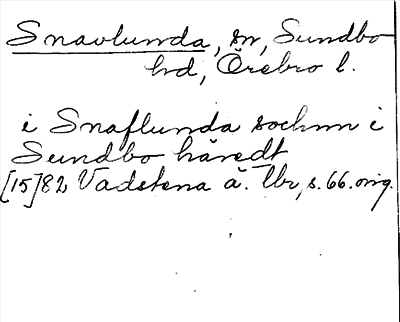 Snavlunda, sn, Sundbo
hd, Örebro l.
i Snaflunda sochnn i
Sundbo häredt
[15]82 Vadstena ä. Ubr, s. 66. orig.